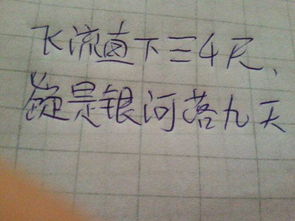 飞流直下三4尺、
疑是银河落九天